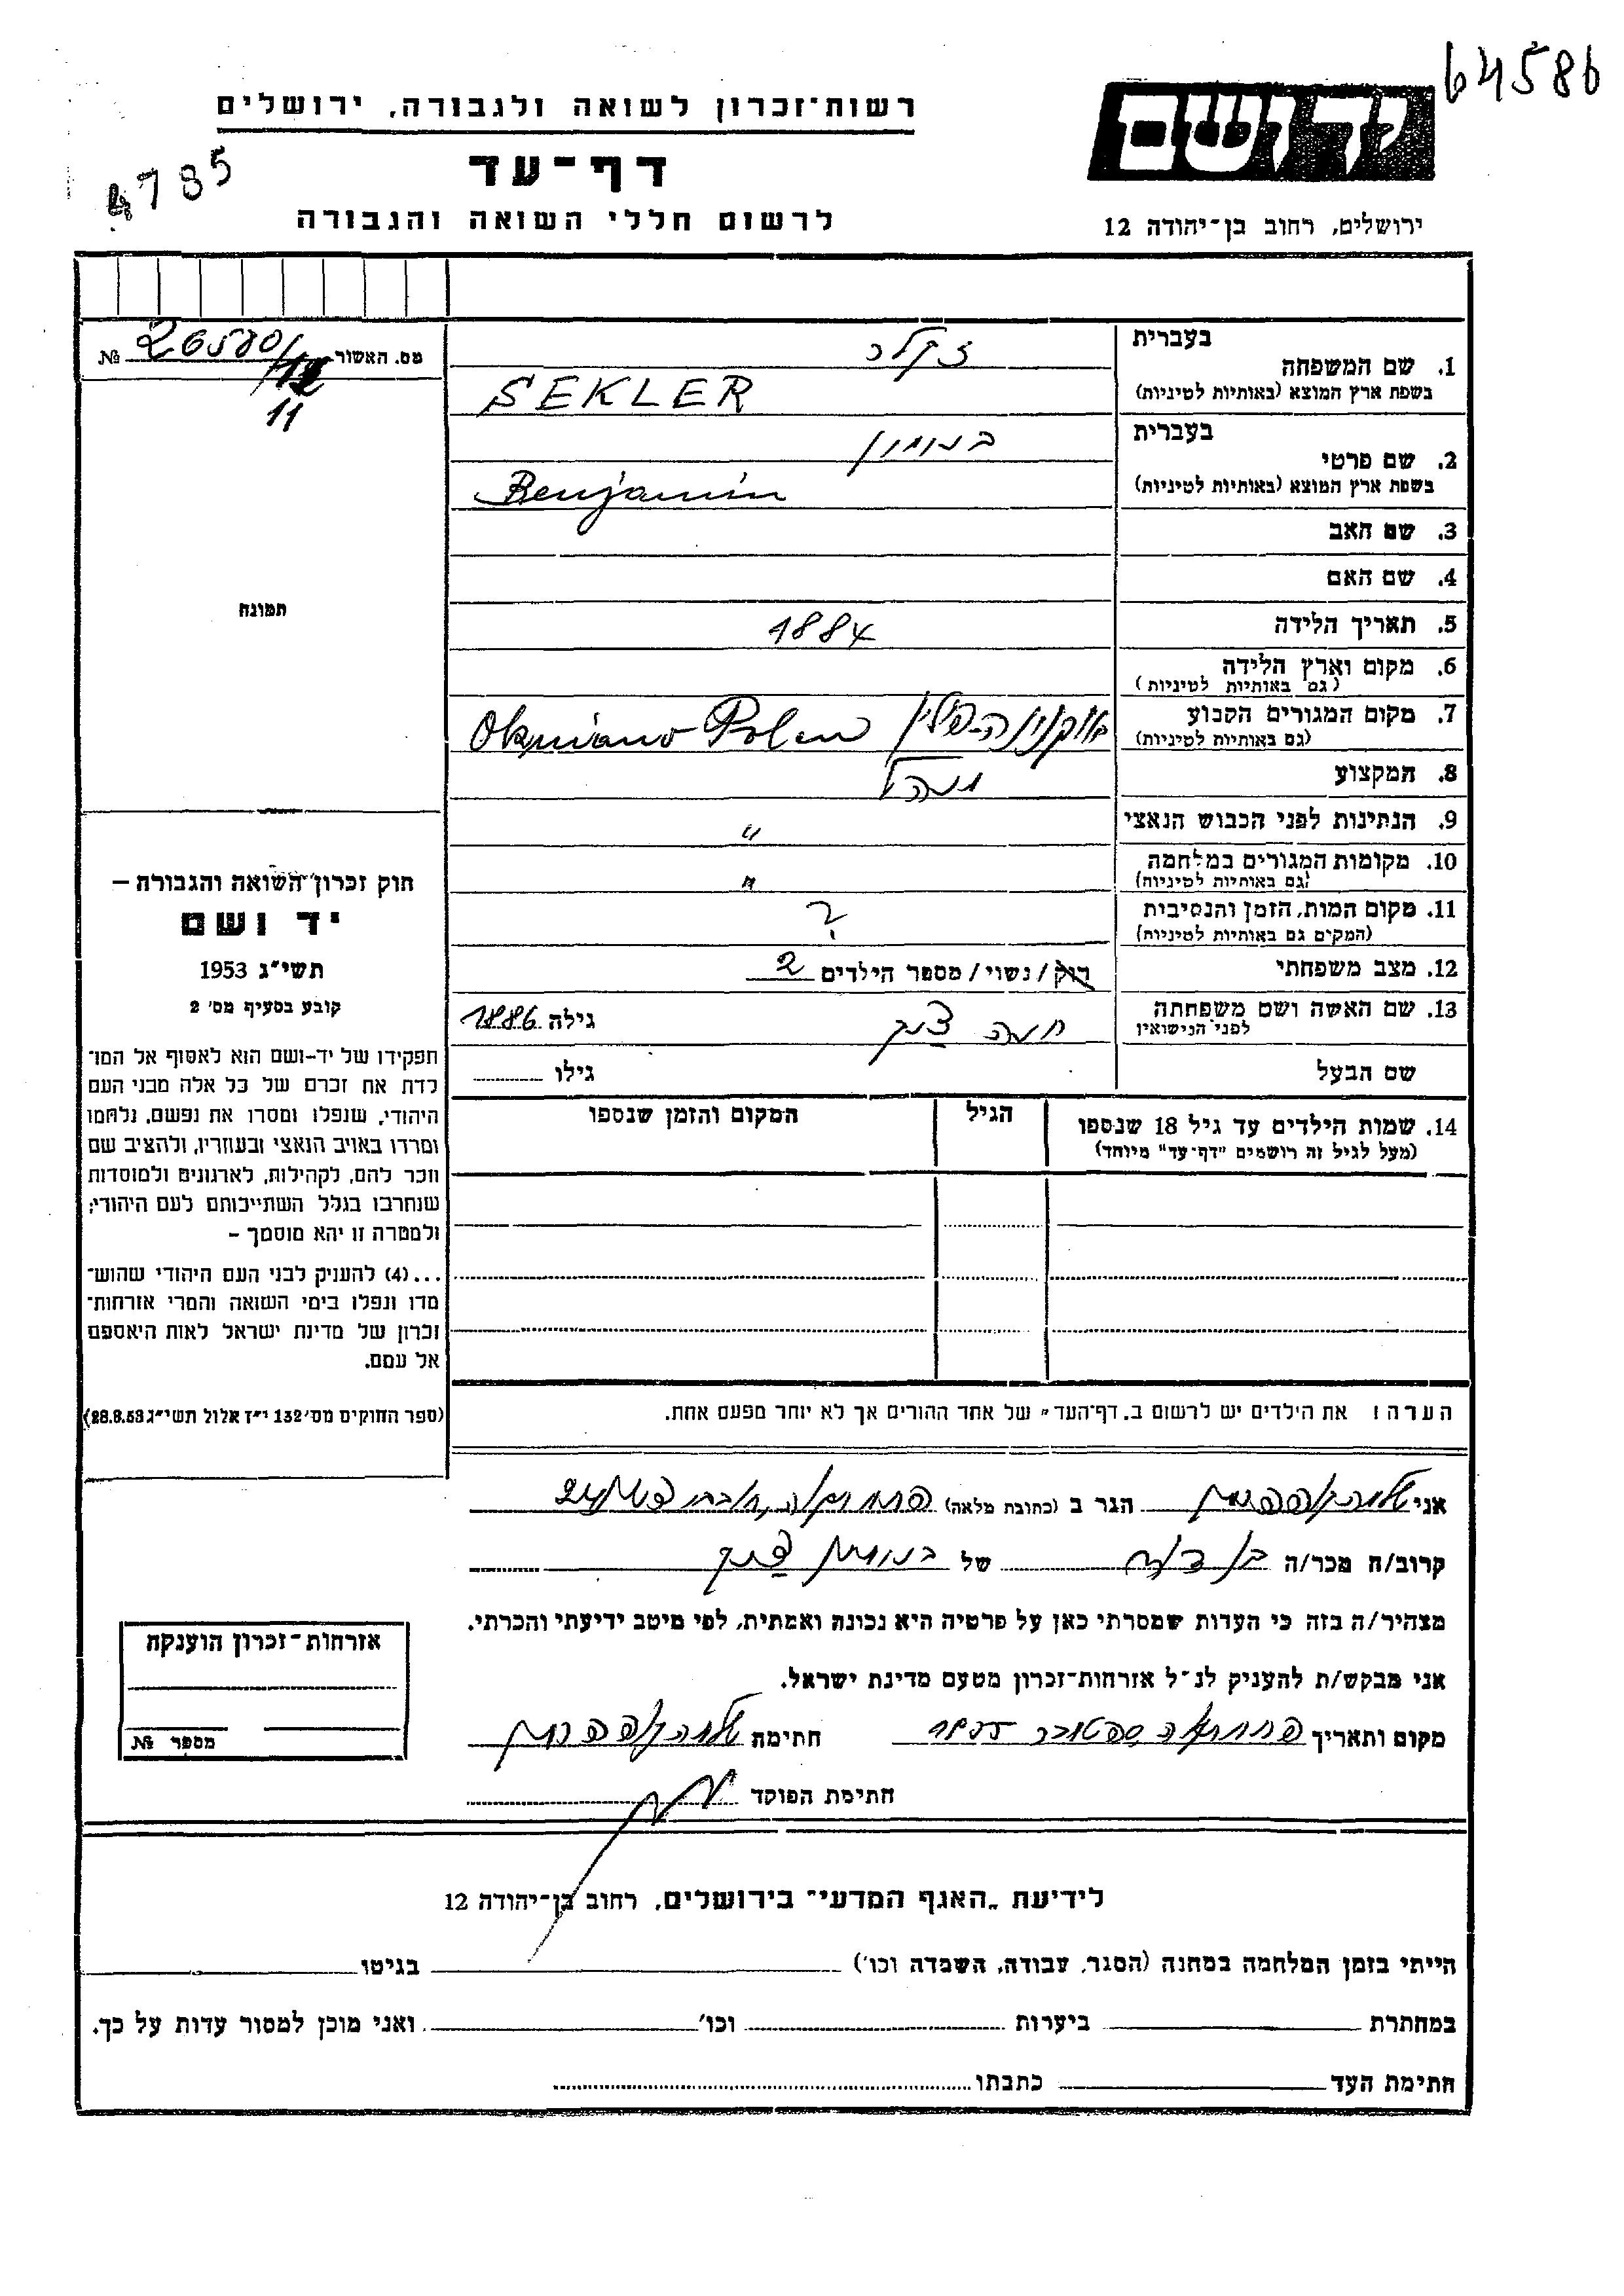 64586
רשות־זכרון לשואה ולגבורה, ירושלים
יד ושם
4785
דף־עד
לרשום חללי השואה והגבורה
ירושלים, רחוב בן־יהודה 12
מס. האשור № 26580/12
11
בעברית
1. שם המשפחה
בשפת ארץ המוצא (באותיות לטיניות)
SEKLER
בעברית בנימין
2. שם פרטי
בשפת ארץ המוצא (באותיות לטיניות)
Benjamin
3. שם האב
4. שם האם
תמונה
5. תאריך הלידה 1884
6. מקום וארץ הלידה
(גם באותיות לטיניות)
7. מקום המגורים הקבוע
(גם באותיות לטיניות)
Polen
8. המקצוע
9. הנתינות לפני הכבוש הנאצי "
10. מקומות המגורים במלחמה "
(גם באותיות לטיניות)
11. מקום המות, הזמן והנסיבות ?
(המקום גם באותיות לטיניות)
12. מצב משפחתי רוק / נשוי / מספר הילדים 2
13. שם האשה ושם משפחתה
לפני הנישואין
גילה 1886
שם הבעל גילו
14. שמות הילדים עד גיל 18 שנספו
(מעל לגיל זה רושמים "דף־עד" מיוחד)
הגיל
המקום והזמן שנספו
הערה: את הילדים יש לרשום ב„דף־העד" של אחד ההורים אך לא יותר מפעם אחת.
חוק זכרון השואה והגבורה –
יד ושם
תשי"ג 1953
קובע בסעיף מס' 2
תפקידו של יד-ושם הוא לאסוף אל המו־
לדת את זכרם של כל אלה מבני העם
היהודי, שנפלו ומסרו את נפשם, נלחמו
ומרדו באויב הנאצי ובעוזריו, ולהציב שם
וזכר להם, לקהילות, לארגונים ולמוסדות
שנחרבו בגלל השתייכותם לעם היהודי;
ולמטרה זו יהא מוסמך –
...(4) להעניק לבני העם היהודי שהוש־
מדו ונפלו בימי השואה והמרי אזרחות־
זכרון של מדינת ישראל לאות היאספם
אל עמם.
(ספר החוקים מס' 132 י"ז אלול תשי"ג 28.8.53)
אני הגר ב (כתובת מלאה)
קרוב/ה מכר/ה בן דוד של בנימין
מצהיר/ה בזה כי העדות שמסרתי כאן על פרטיה היא נכונה ואמתית, לפי מיטב ידיעתי והכרתי.
אני מבקש/ת להעניק לנ"ל אזרחות־זכרון מטעם מדינת ישראל.
מקום ותאריך ספטובר חתימה
חתימת הפוקד
אזרחות־זכרון הוענקה
מספר №
לידיעת „האגף המדעי" בירושלים, רחוב בן־יהודה 12
הייתי בזמן המלחמה במחנה (הסגר, עבודה, השמדה וכו') בגיטו
במחתרת ביערות וכו' ואני מוכן למסור עדות על כך.
חתימת העד כתבתו